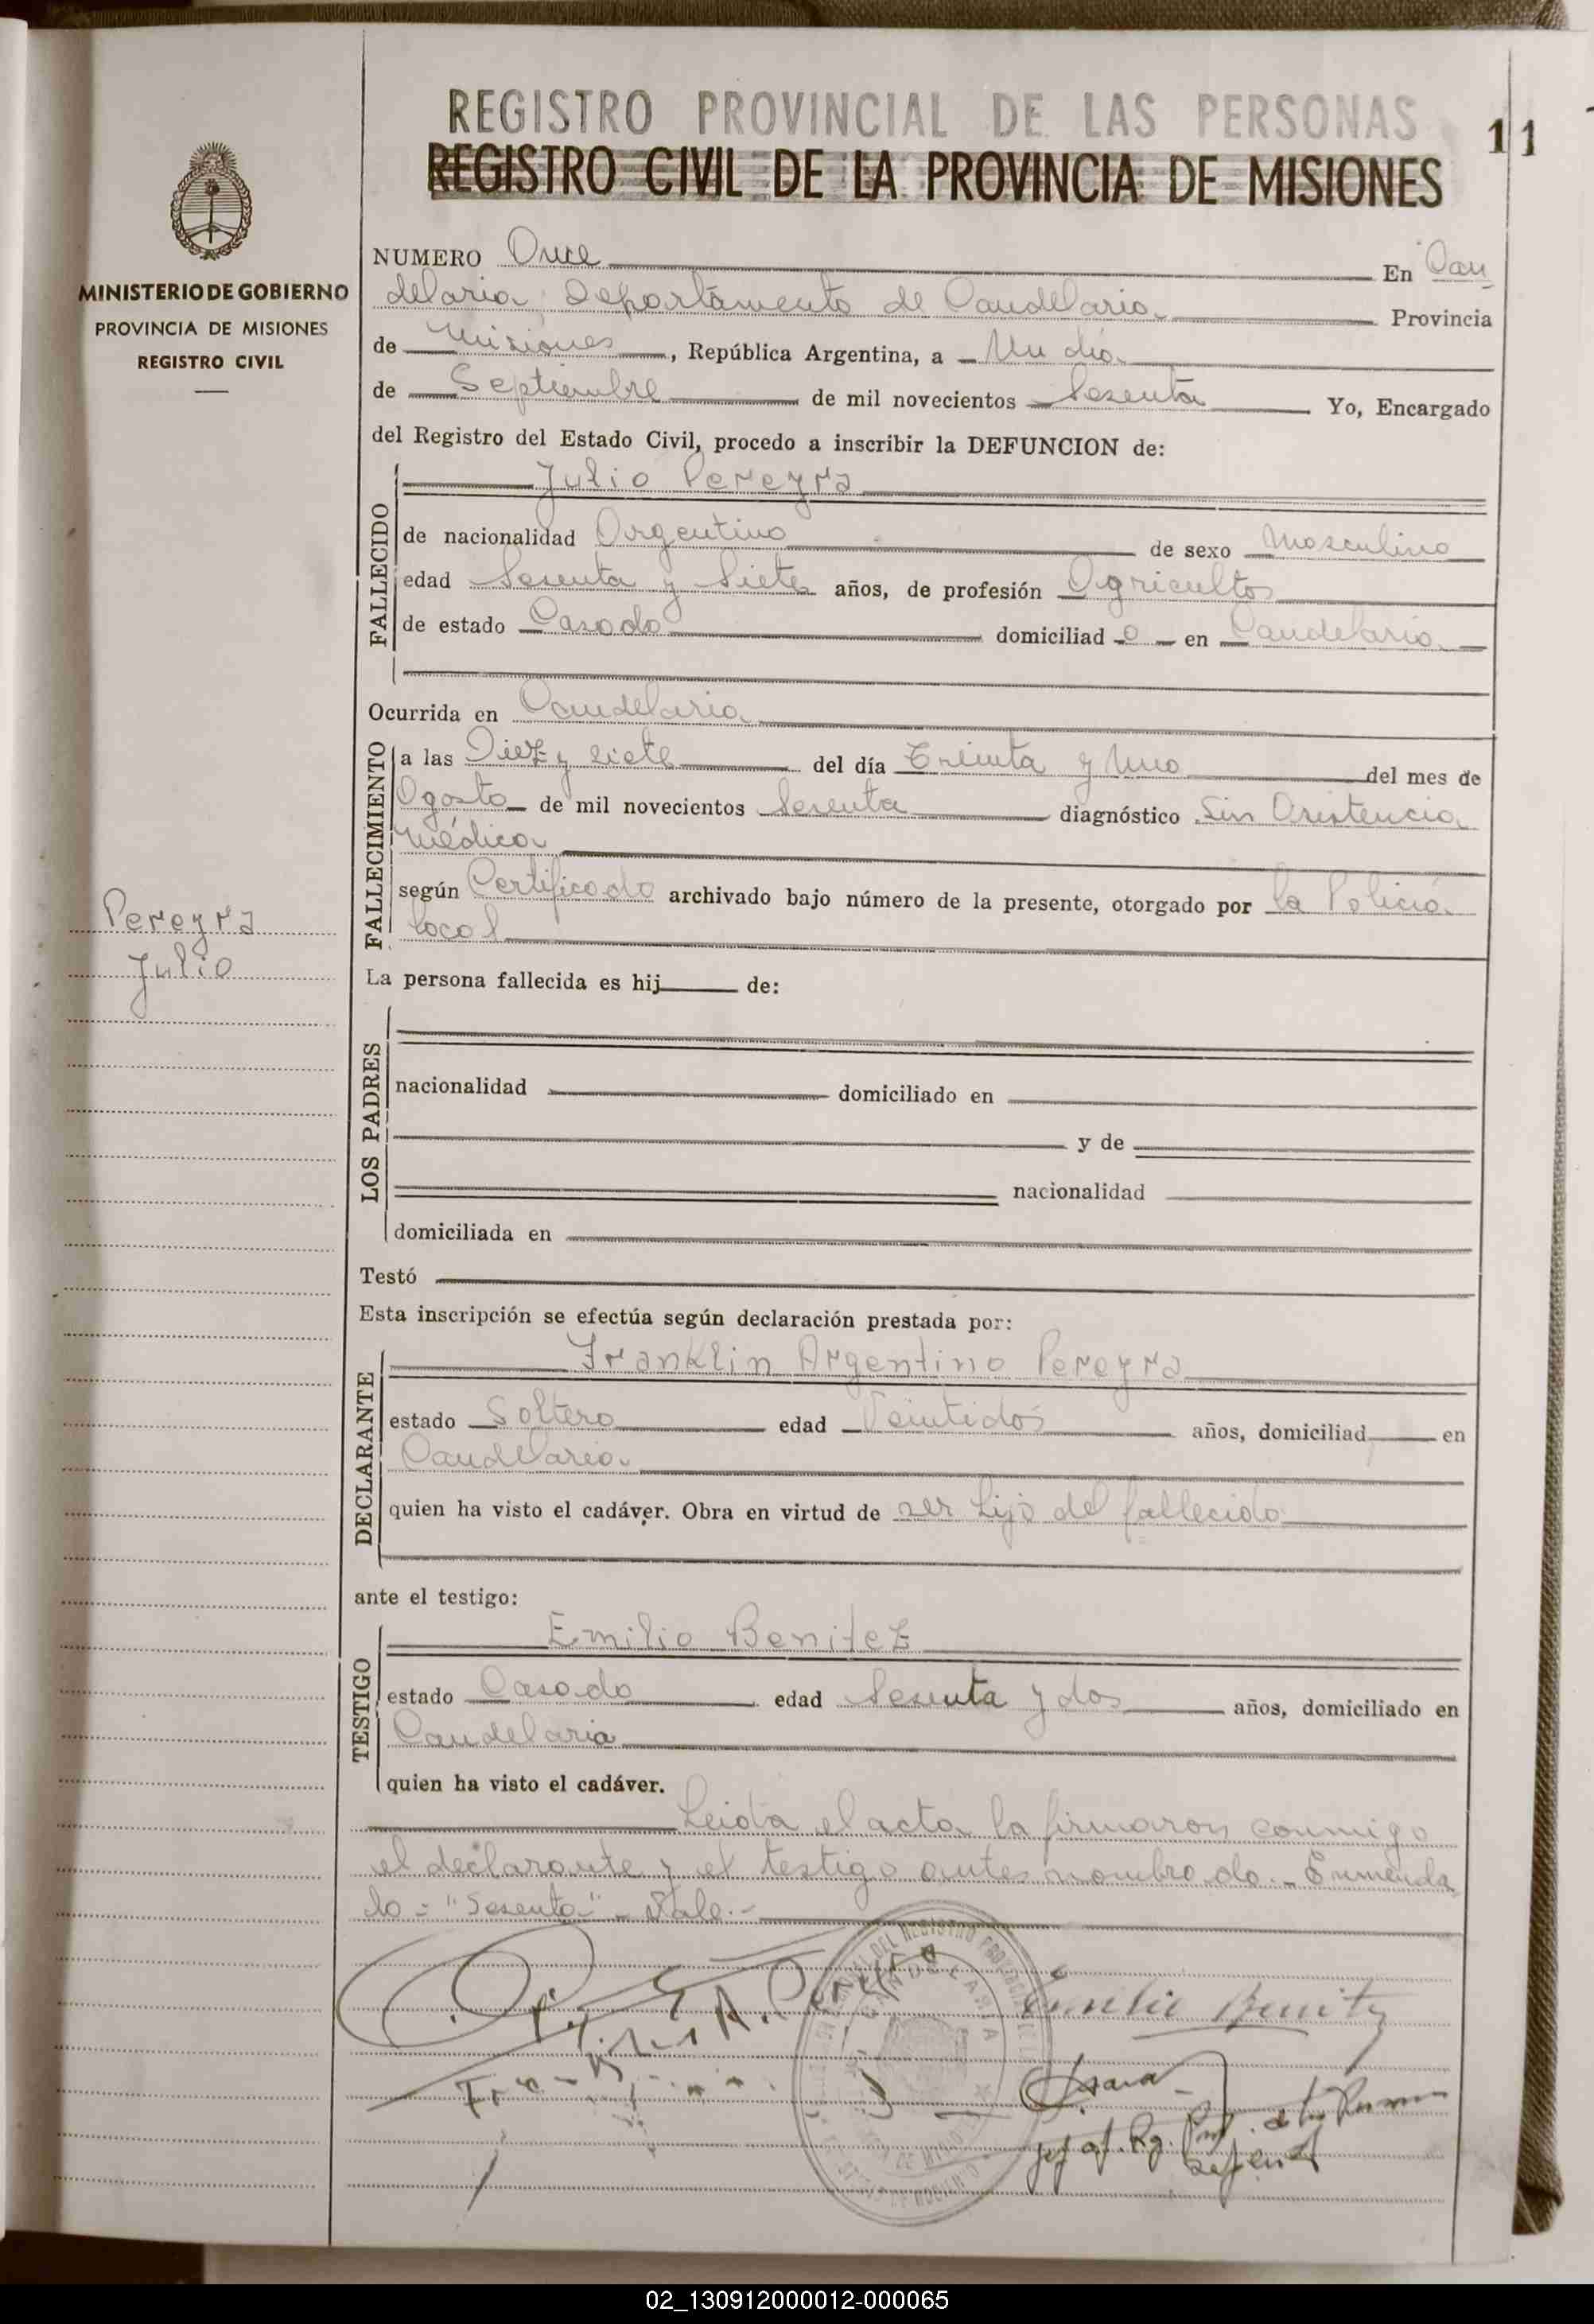 REGISTRO PROVINCIAL DE LAS PERSONAS
11
REGISTRO CIVIL DE LA PROVINCIA DE MISIONES
MINISTERIO DE GOBIERNO
PROVINCIA DE MISIONES
REGISTRO CIVIL
NUMERO Once En Can
delaria, Departamento de Candelaria Provincia
de Misiones, República Argentina, a Un día
de Septiembre de mil novecientos Sesenta Yo, Encargado
del Registro del Estado Civil, procedo a inscribir la DEFUNCION de:
Julio Pereyra
FALLECIDO
de nacionalidad Argentino de sexo Masculino
edad Sesenta y Siete años, de profesión Agricultor
de estado Casado domiciliad o en Candelaria
Ocurrida en Candelaria
FALLECIMIENTO
a las Diez y siete del día Treinta y Uno del mes de
Agosto de mil novecientos Sesenta diagnóstico Sin Asistencia
Médica
según Certificado archivado bajo número de la presente, otorgado por la Policía
local
Pereyra
Julio
La persona fallecida es hij de:
LOS PADRES
nacionalidad domiciliado en
y de
nacionalidad
domiciliada en
Testó
Esta inscripción se efectúa según declaración prestada por:
Franklin Argentino Pereyra
DECLARANTE
estado Soltero edad Veintidos años, domiciliad en
Candelaria
quien ha visto el cadáver. Obra en virtud de ser hijo del fallecido
ante el testigo:
Emilio Benitez
TESTIGO
estado Casado edad Sesenta y dos años, domiciliado en
Candelaria
quien ha visto el cadáver.
Leida el acta la firmaron conmigo
el declarante y el testigo antes nombrado. - Enmenda
do = "Sesenta" - Vale. -
Emilio Benitez
CANDELARIA
02_130912000012-000065